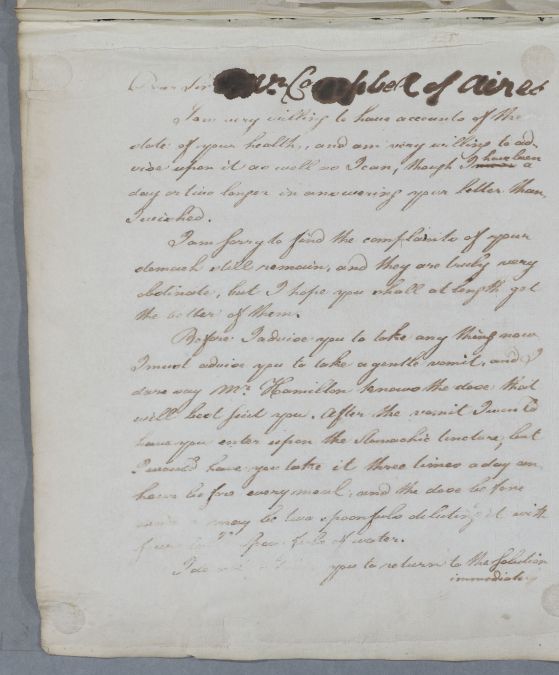 Dear Sir Mr Campbel of Aires
I am very willing to have accounts of the
state of your health, and am very willing to ad-
vise upon it as well as I can, though I have been a
day or two longer in answering your letter than
I wished.
I am sorry to find the complaints of your
stomach still remain, and they are truly very
obstinate, but I hope you shall at length get
the better of them.
Before I advise you to take any thing now
I must advise you to take a gentle vomit, and I
dare say Mr. Hamilton knows the dose that
will best suit you. After the vomit I would
have you enter upon the Stomachic tincture, but
I would have you take it three times a day an
hour before every meal, and the dose before
may be two spoonfuls diluting it with
of water.
I you to return to the Solution
immediately